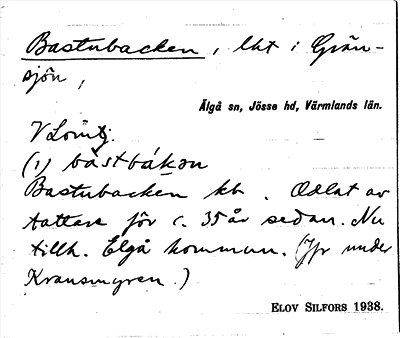 Bastubacken, lht i Grän-
sjön,
Älgå sn, Jösse hd, Värmlands län.
(1) båstbákɔn
Bastubacken kb. Odlat av
tattare för c. 35 år sedan. Nu
tillh. Elgå kommun. (Jfr under
Kransmyren.)
ELOV SILFORS 1938.